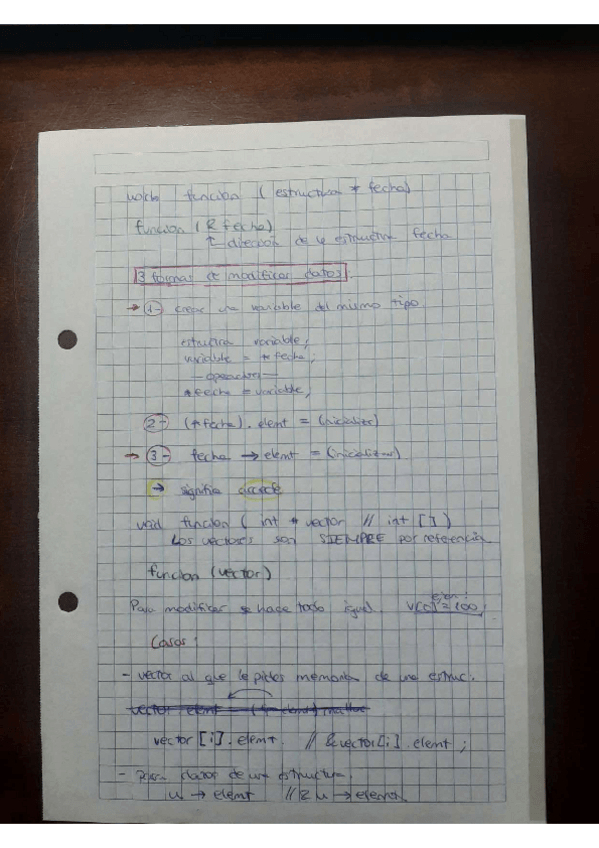 void funcion ( estructura * fecha)
funcion ( & fecha)
↑ dirección de la estructura fecha
3 formas de modificar datos.
→ 1- crear una variable del mismo tipo
estructura variable;
variable = * fecha;
— operación —
* fecha = variable;
2- (*fecha). elemt = (inicializar)
→ 3- fecha → elemt = (inicializar)
→ significa accede
void funcion ( int * vector // int [ ] )
Los vectores son SIEMPRE por referencia
funcion (vector)
Para modificar se hace todo igual. ejem: v[0] = 100;
Casos:
- vector al que le pides memoria de una estruc.
vector [i]. elemt. // & vector[i]. elemt ;
- Para datos de una estructura.
u → elemt // & u → elemt.